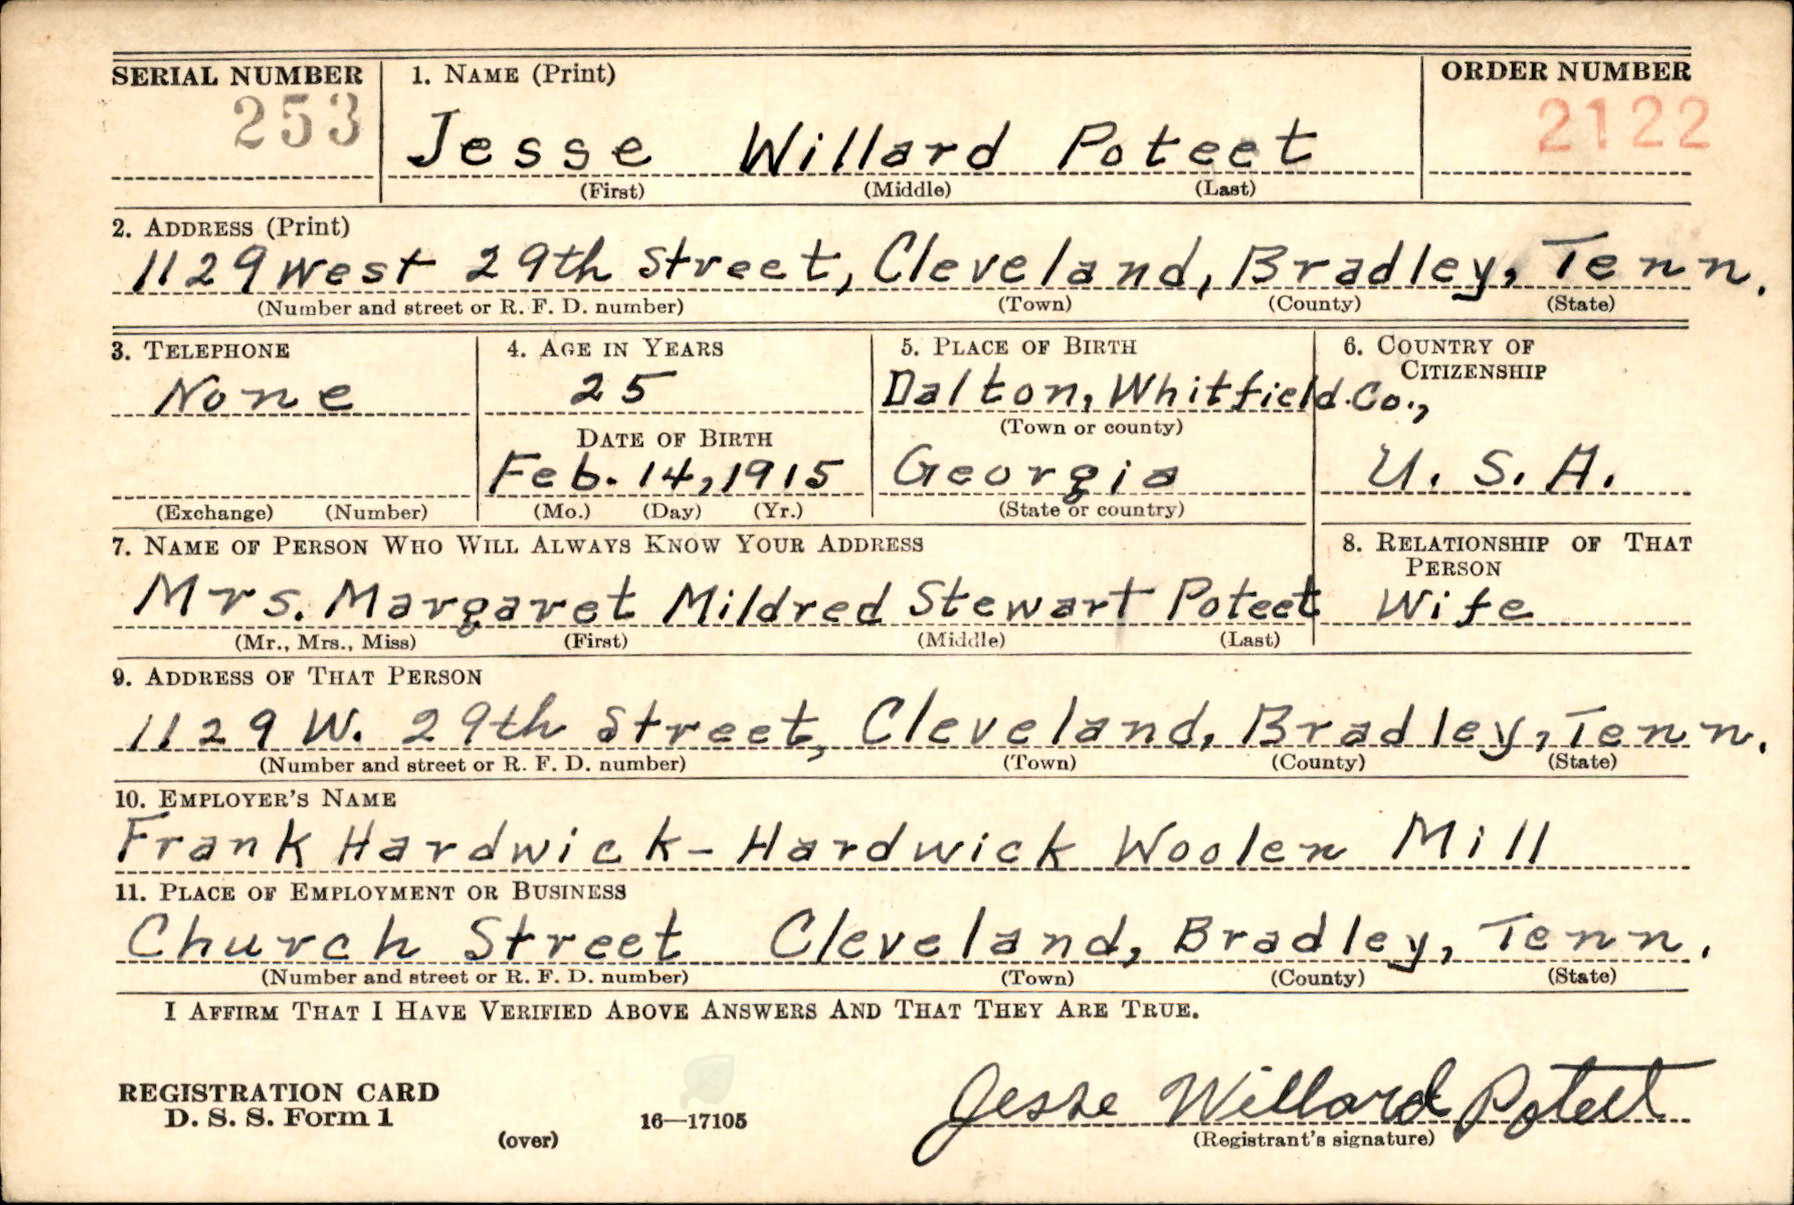 SERIAL NUMBER
253
1. NAME (Print)
Jesse Willard Poteet
(First) (Middle) (Last)
ORDER NUMBER
2122
2. ADDRESS (Print)
1129 West 29th Street, Cleveland, Bradley, Tenn.
(Number and street or R. F. D. number) (Town) (County) (State)
3. TELEPHONE
None
(Exchange) (Number)
4. AGE IN YEARS
25
DATE OF BIRTH
Feb. 14, 1915
(Mo.) (Day) (Yr.)
5. PLACE OF BIRTH
Dalton, Whitfield Co.,
(Town or county)
Georgia
(State or country)
6. COUNTRY OF
CITIZENSHIP
U. S. A.
7. NAME OF PERSON WHO WILL ALWAYS KNOW YOUR ADDRESS
Mrs. Margaret Mildred Stewart Poteet
(Mr., Mrs., Miss) (First) (Middle) (Last)
8. RELATIONSHIP OF THAT
PERSON
Wife
9. ADDRESS OF THAT PERSON
1129 W. 29th Street, Cleveland, Bradley, Tenn.
(Number and street or R. F. D. number) (Town) (County) (State)
10. EMPLOYER'S NAME
Frank Hardwick - Hardwick Woolen Mill
11. PLACE OF EMPLOYMENT OR BUSINESS
Church Street Cleveland, Bradley, Tenn.
(Number and street or R. F. D. number) (Town) (County) (State)
I AFFIRM THAT I HAVE VERIFIED ABOVE ANSWERS AND THAT THEY ARE TRUE.
REGISTRATION CARD
D. S. S. Form 1
(over)
16—17105
Jesse Willard Poteet
(Registrant's signature)